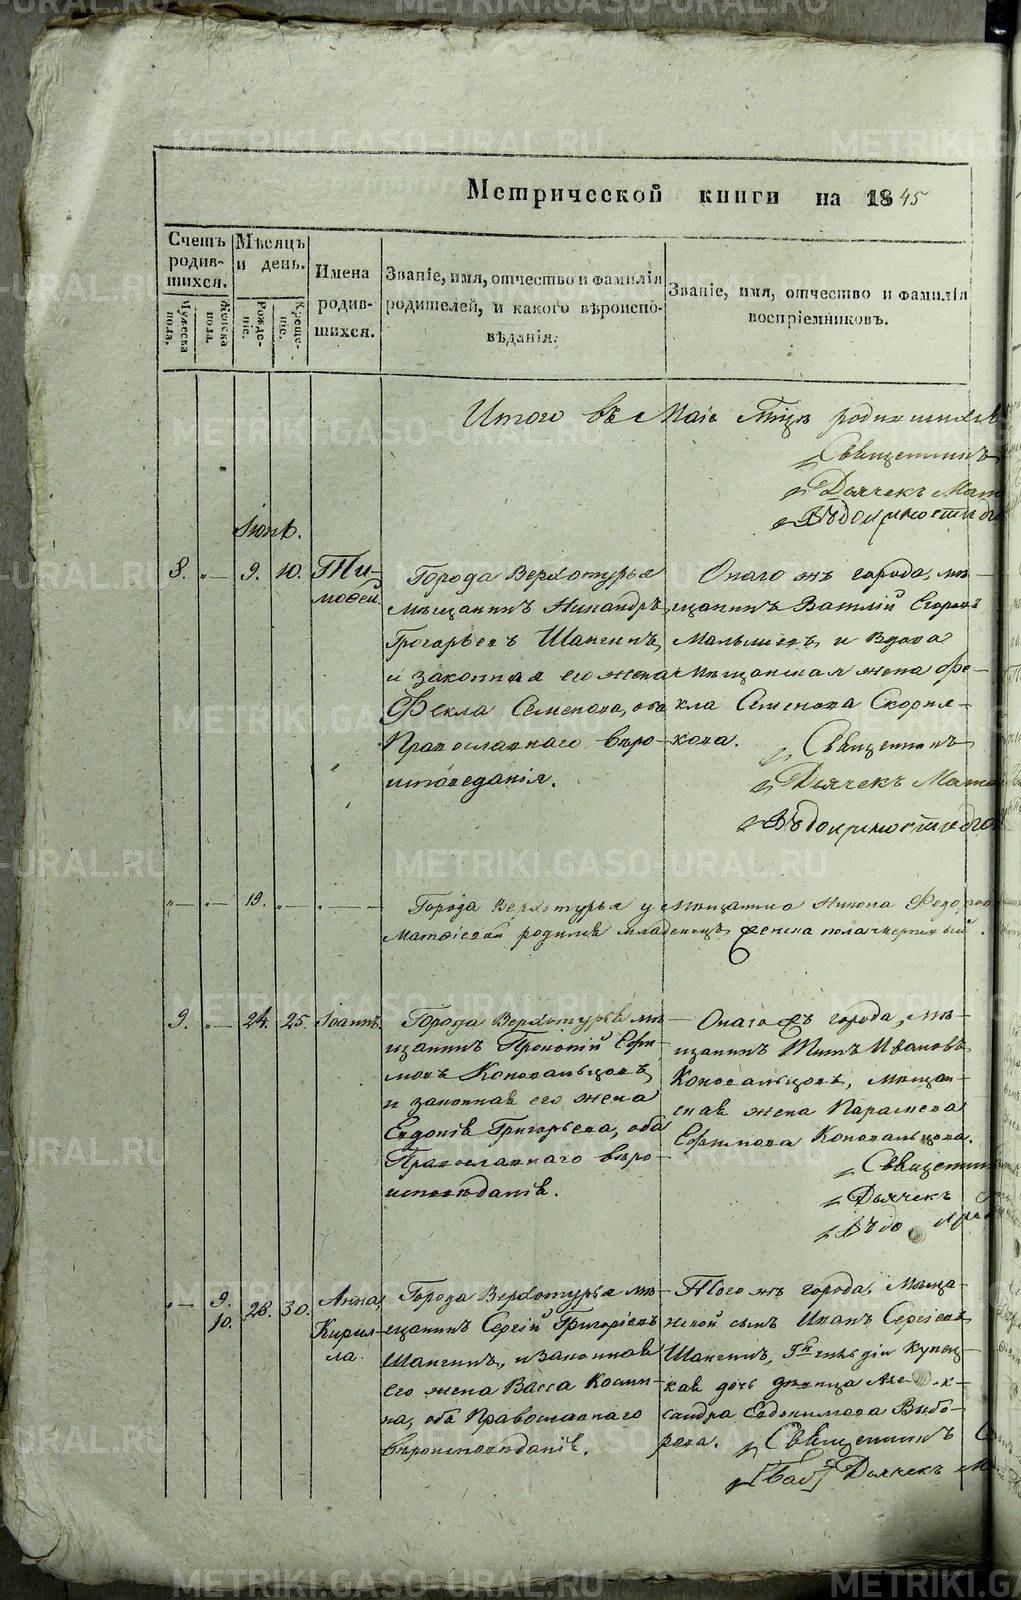 Метрической книги на 1845
Счетъ
родив-
шихся.
Мѣсяцъ
и день.
Имена
родив-
шихся.
Званіе, имя, отчество и фамилія
родителей, и какого вѣроиспо-
вѣданія.
Званіе, имя, отчество и фамилія
воспріемниковъ.
Мужеска
пола.
Женска
пола.
Рожде-
ніе.
Креще-
ніе.
Итого въ Маіе Мцѣ родившихся
Священникъ
Дьячекъ
Іюнь.
8. „— 9. 10.
Ти-
мофей
Города Верхотурья
мѣщанинъ Никандръ
Григорьевъ Шангинъ,
и законная его жена
Фекла Семенова, оба
Православнаго вѣро-
исповеданія.
Онаго жъ города, мѣ-
щанинъ Василій Егоровъ
Малышевъ, и вдова
мѣщанская жена Фе-
кла Семенова Скорня-
кова.
Священникъ
Дьячекъ
„— „— 19. „— „—
Города Верхотурья у мѣщанина Никона
родился младенецъ женска пола мертвый.
9. „— 24. 25. Іоаннъ.
Города Верхотурья мѣ-
щанинъ Прокопій Ефи-
мовъ Коновальцовъ,
и законная его жена
Евдокія Григорьева, оба
Православнаго вѣро-
исповѣданія.
Онаго жъ города, мѣ-
щанинъ Титъ Ивановъ
Коновальцовъ, мѣщан-
ская жена Параскева
Ефимова Коновальцова.
Священникъ
Дьячекъ
„— 9.
10. 28. 30.
Анна,
Кирил-
ла.
Города Верхотурья мѣ-
щанинъ Сергій Григоріевъ
Шангинъ, и законная
его жена Васса Косми-
на, оба Православнаго
вѣроисповѣданія.
Того жъ города, мѣща-
нской сынъ Иванъ Сергіевъ
Шангинъ, 3й гильдіи купец-
кая дочь девица
сандра Евдокимова Выбо-
рова.
Священникъ
Дьячекъ
METRIKI.GASO-URAL.RU